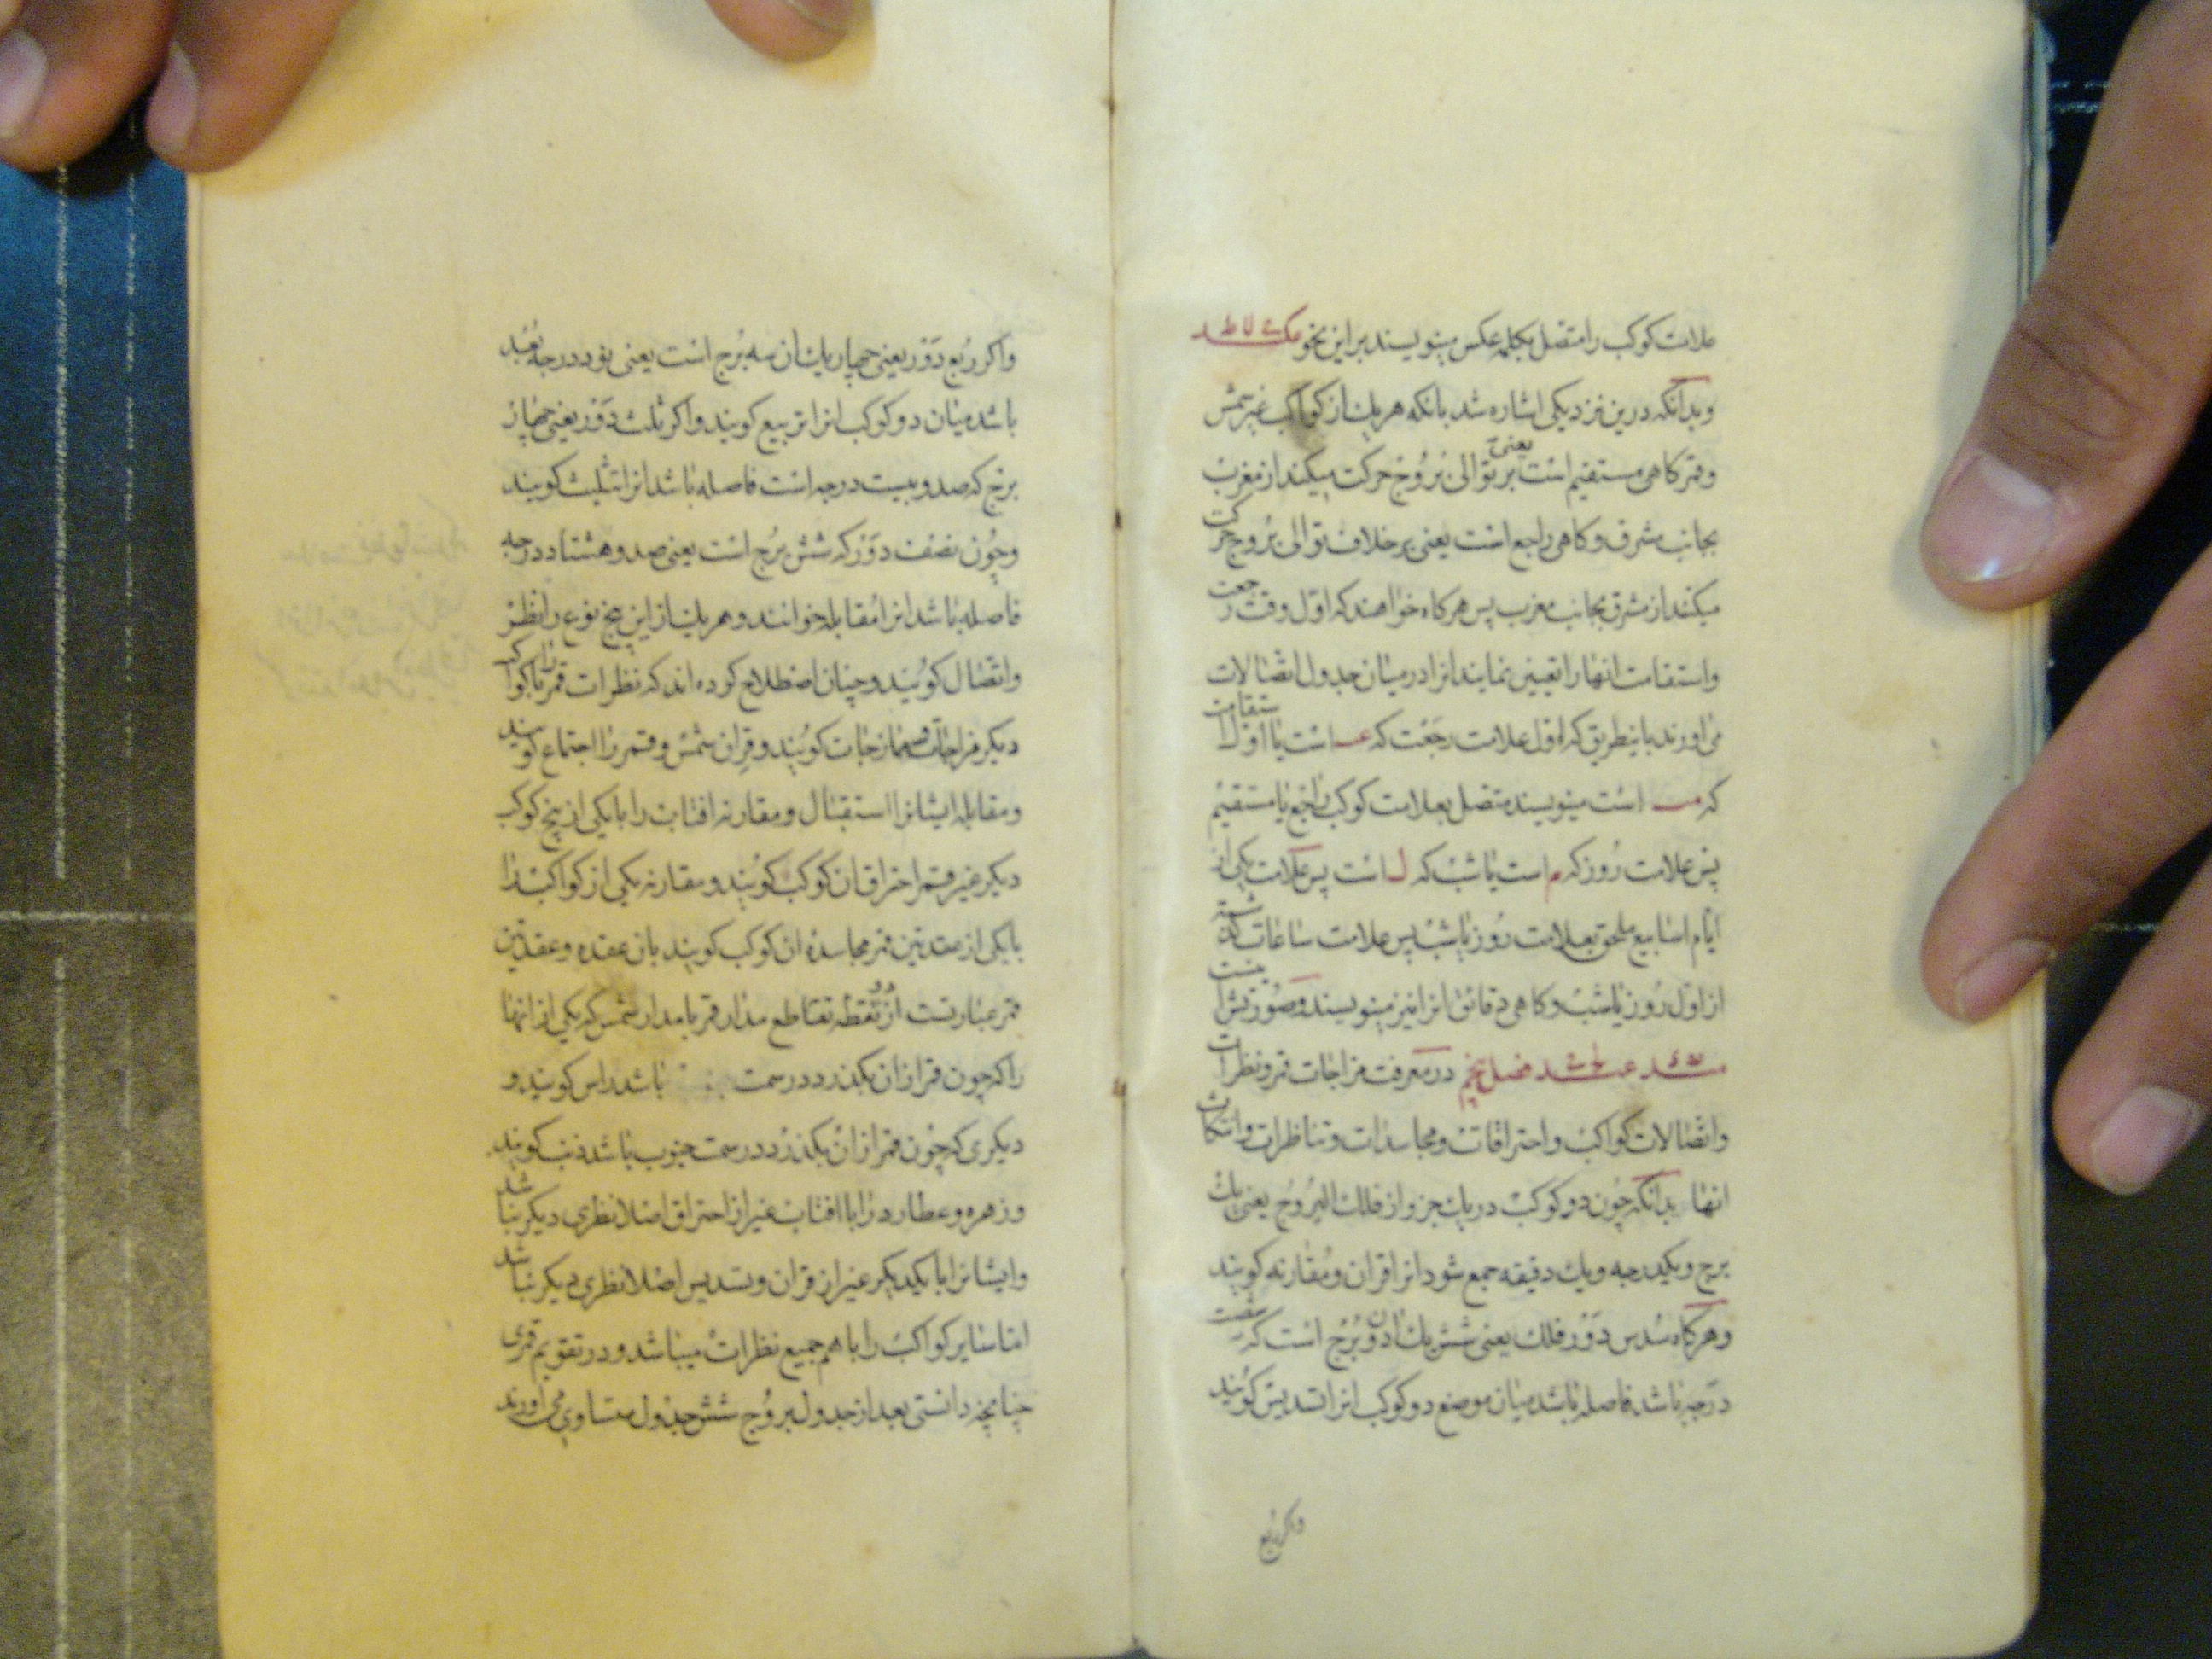 علامت کوکب را متصل بکلمهٔ عکس مینویسند براین نحو
وبدانکه درین نزدیکی اشاره شد بانکه هریك از کواکب غیر شمس
وقمر کاهی مستقیم است یعنی بر توالی بروج حرکت میکند از مغرب
بجانب مشرق وکاهی راجع است یعنی بر خلاف توالی بروج حرکت
میکند از مشرق بجانب مغرب پس هرکاه خواهند که اول وقت رجعت
واستقامت انها را تعیین نمایند انرا در میان جدول اتصالات
می اورند باینطریق که اول علامت رجعت که عـ است یا اول استقامت
که مـ است مینویسند متصل بعلامت کوکب راجع یا مستقیم
پس علامت روز که م است یا شب که ل است پس علامت یکی از
ایام اسابیع ملحق بعلامت روز یا شب پس علامت ساعات کذشته
از اول روز یا شب وکاهی دقائق انرا نیز مینویسند وصورتش اینست
فصل پنجم در معرفت مزاجات قمر ونظرات
واتصالات کواکب واحتراقات ومجاسدات وتناظرات وانتکاث
انها بدانکه چون دو کوکب در یك جزو از فلك البروج یعنی یك
برج ویکدرجه ویك دقیقه جمع شود انرا قران ومقارنه کویند
وهرکاه سدس دور فلك یعنی شش یك ان دو برج است که شصت
درجه باشد فاصله باشد میان موضع دو کوکب انرا تسدیس کویند
واکر ربع
واکر ربع دور یعنی چهار یك ان سه برج است یعنی نود درجه بعد
باشد میان دو کوکب انرا تربیع کویند واکر ثلث دور یعنی چهار
برج که صد وبیست درجه است فاصله باشد انرا تثلیث کویند
وچون نصف دور که شش برج است یعنی صد وهشتاد درجه
فاصله باشد انرا مقابله خوانند وهریك از این پنج نوع را نظر
واتصال کویند وچنان اصطلاح کرده اند که نظرات قمر را با کواکب
دیکر مزاجات وممازجات کویند وقران شمس وقمر را اجتماع کویند
ومقابلهٔ ایشانرا استقبال ومقارنه افتاب را با یکی از پنج کوکب
دیکر غیر قمر احتراق ان کوکب کویند ومقارنه یکی از کواکب را
با یکی از عقدتین قمر مجاسدهٔ ان کوکب کویند بان عقده وعقدتین
قمر عبارتست از دو نقطه تقاطع مدار قمر با مدار شمس که یکی از انها
را که چون قمر از ان بکذرد در سمت باشد راس کویند و
دیکری که چون قمر از ان بکذرد در سمت جنوب باشد ذنب کویند
وزهره وعطارد را با افتاب غیر از احتراق اصلا نظری دیکر نباشد
وایشانرا با یکدیکر غیر از قران وتسدیس اصلا نظری دیکر نباشد
اما سایر کواکب را باهم جمیع نظرات میباشد ودر تقویم قمری
چنانچه دانستی بعد از جدول بروج شش جدول متساوی می اورند